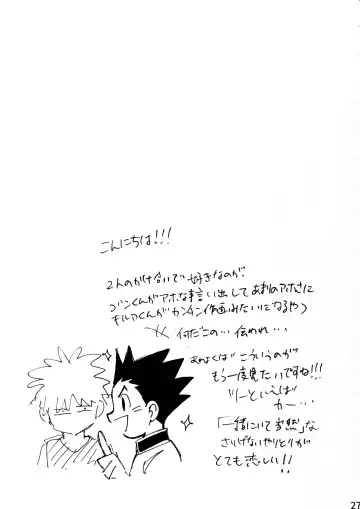 こんにちは!!!
2人のかけ合いで好きなのが、
ゴンくんがアホな事言い出して あまりのアホさに
キルアくんがカンタン作画みたいになるやつ
何だこの…
あわよくば こういうのが
もう一度見たいですね!!!
というえば
「一緒にいて当然」な
さりげないやりとりが
とても恋しい!!
27